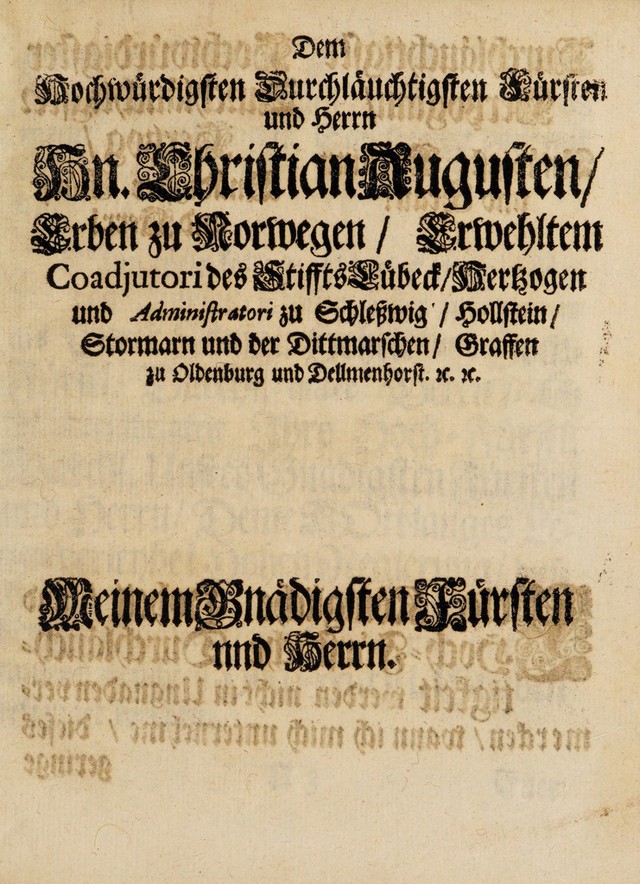 Dem
Hochwürdigsten Durchläuchtigsten Fürsten
und Herrn
Hn. Christian Augusten /
Erben zu Norwegen / Erwehltem
Coadjutori des Stiffts Lübeck / Hertzogen
und Administratori zu Schleßwig / Hollstein /
Stormarn und der Dittmarschen / Graffen
zu Oldenburg und Dellmenhorst. ꝛc. ꝛc.
Meinem Gnädigsten Fürsten
nnd Herrn.